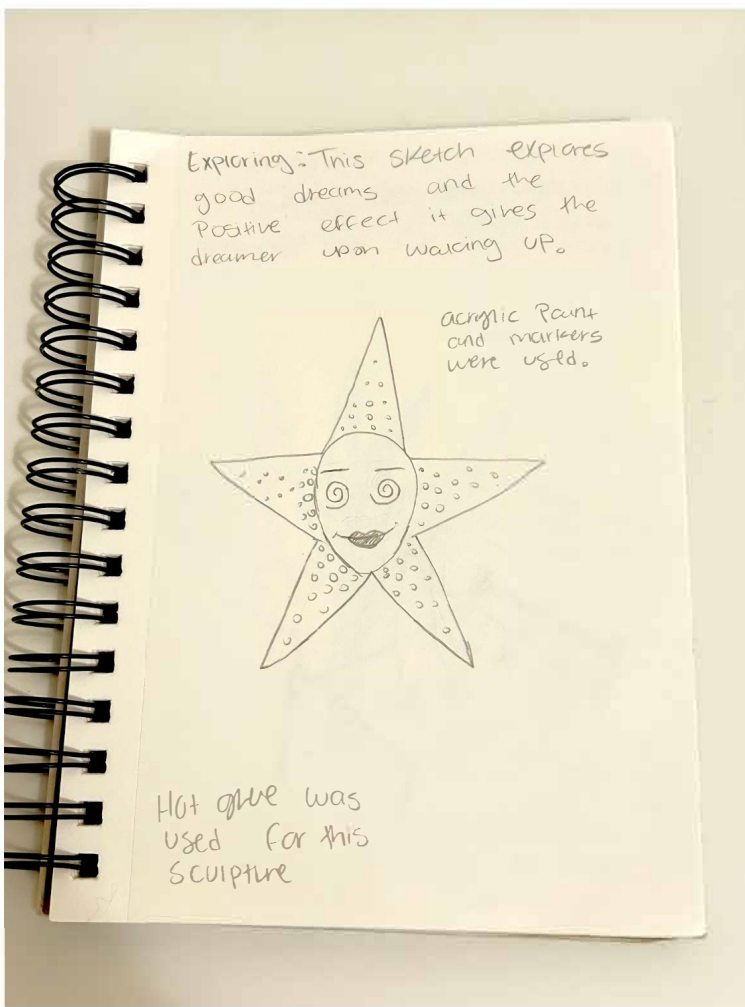 Exploring: This sketch explores
good dreams and the
Positive effect it gives the
dreamer upon waking up.
acrylic Paint
and markers
were used.
Hot glue was
used for this
sculpture